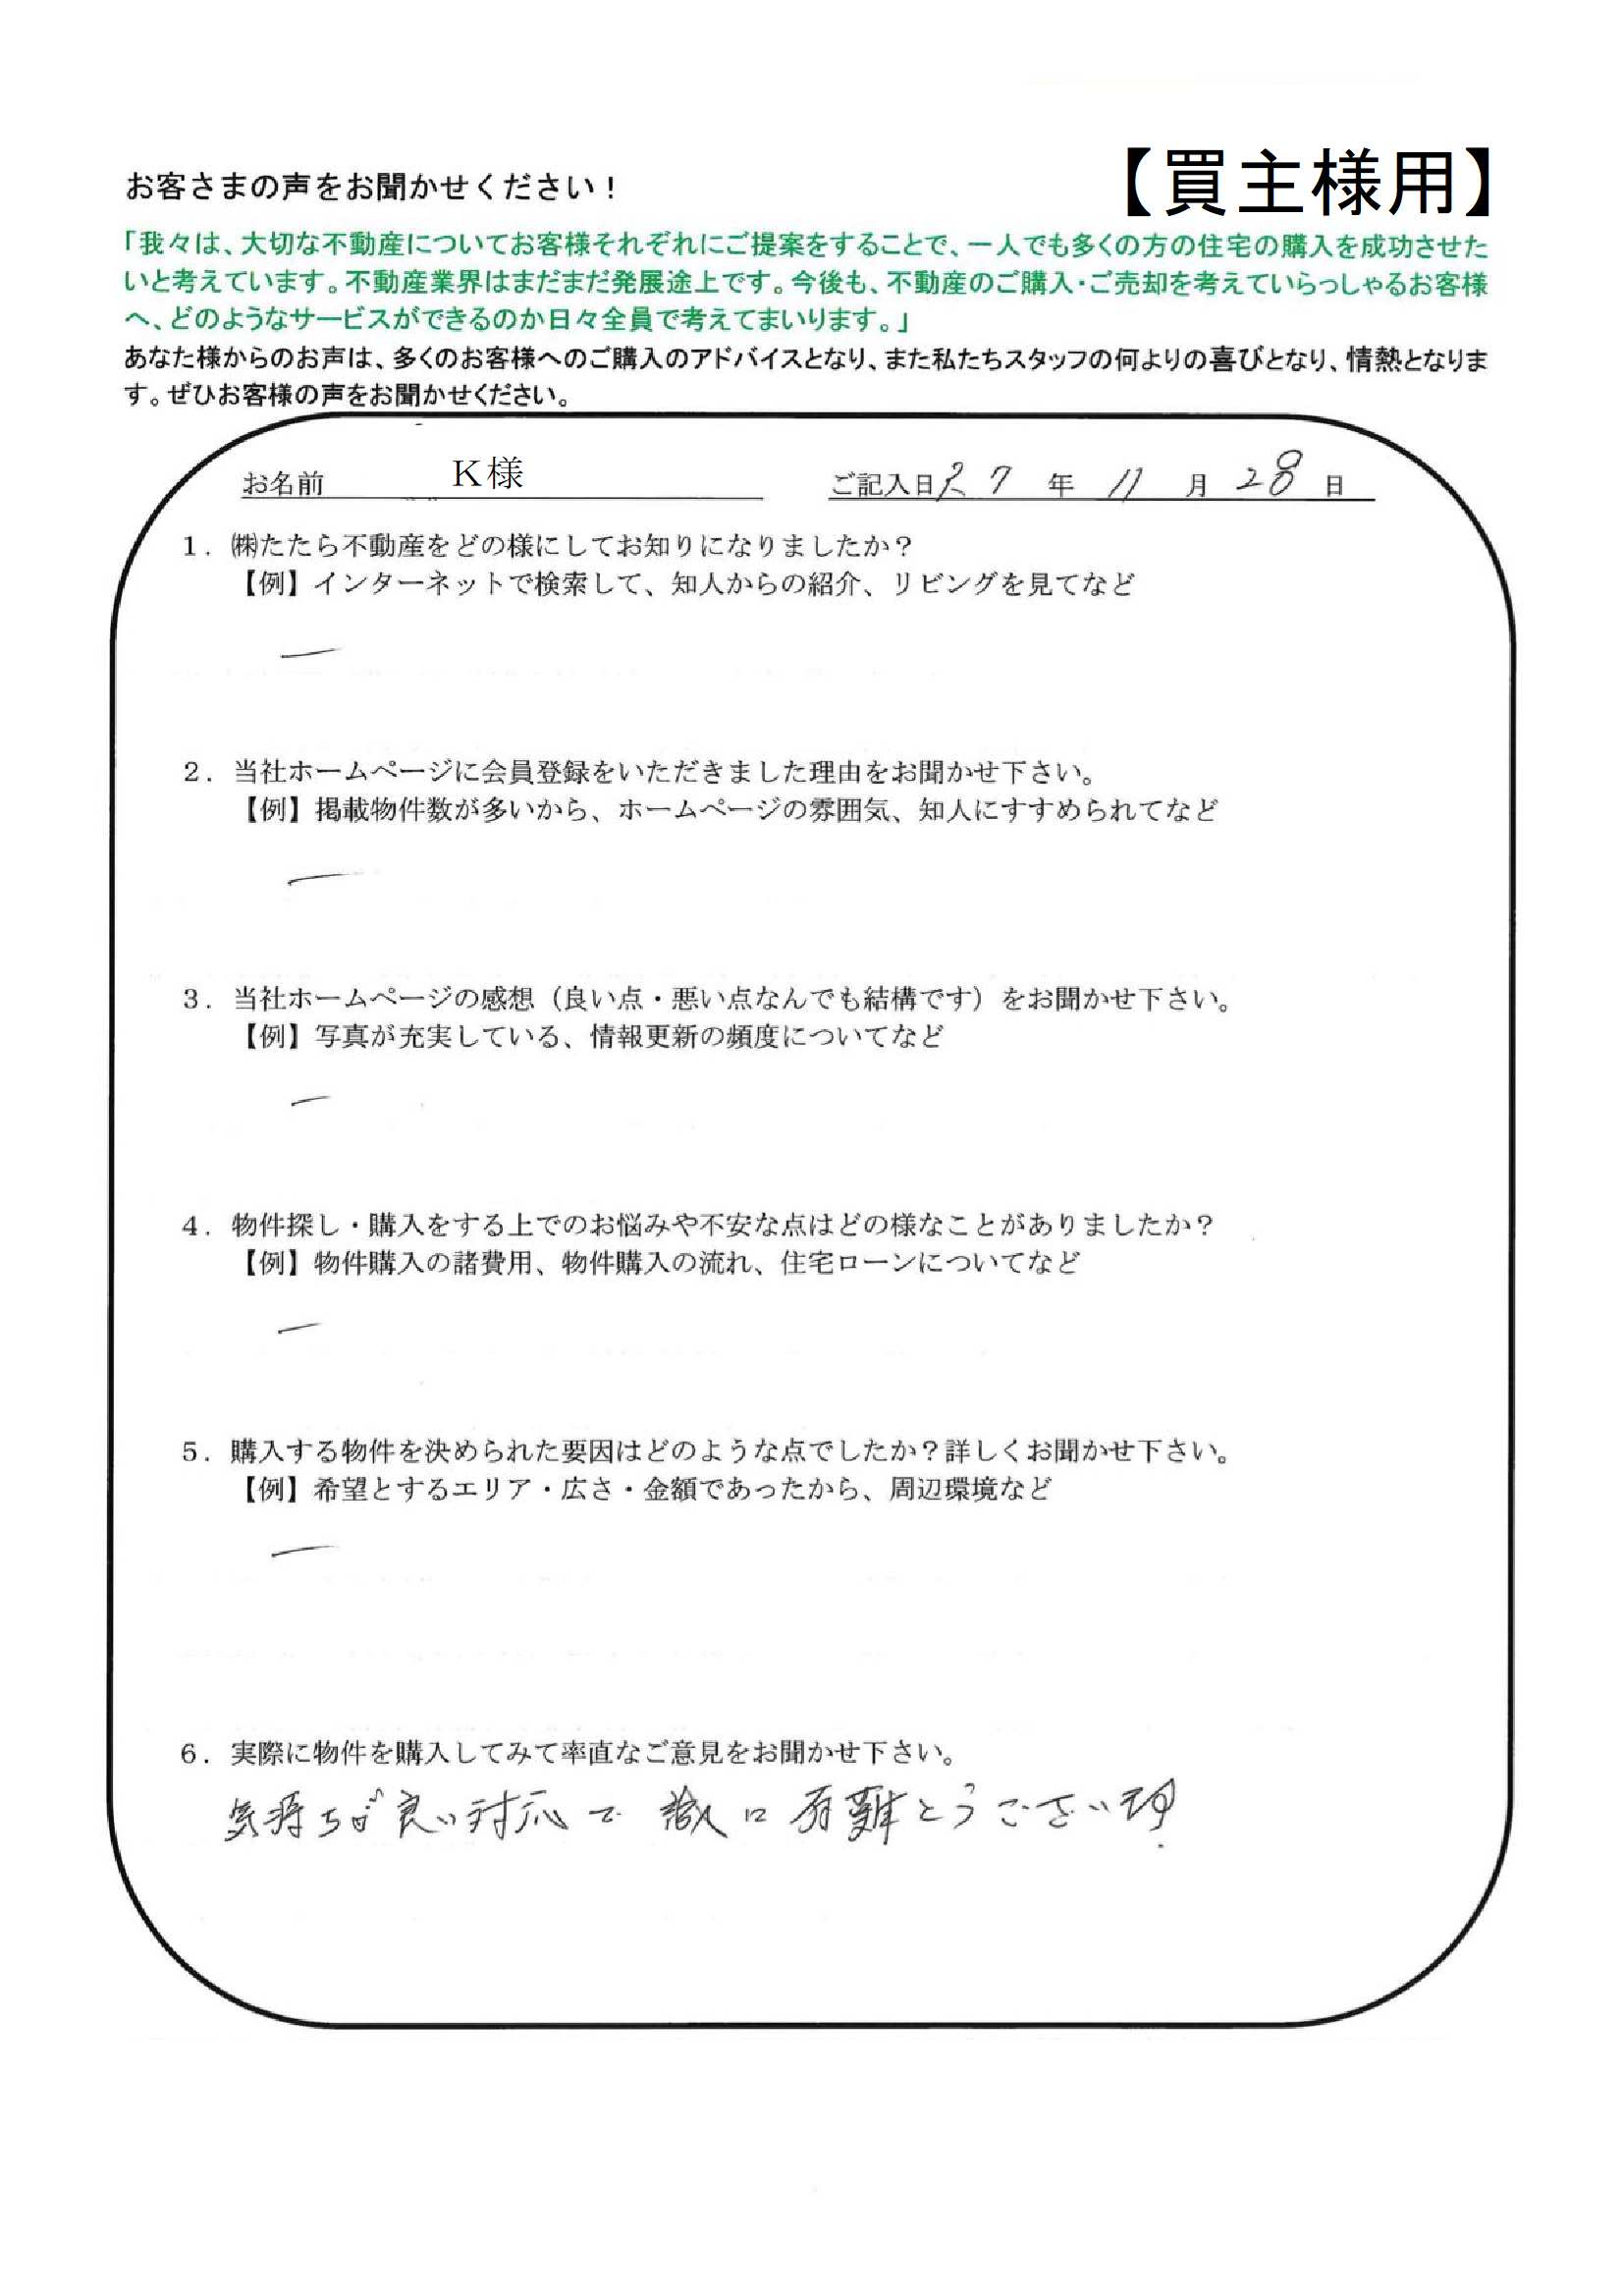 【買主様用】
お客さまの声をお聞かせください！
「我々は、大切な不動産についてお客様それぞれにご提案をすることで、一人でも多くの方の住宅の購入を成功させた
いと考えています。不動産業界はまだまだ発展途上です。今後も、不動産のご購入・ご売却を考えていらっしゃるお客様
へ、どのようなサービスができるのか日々全員で考えてまいります。」
あなた様からのお声は、多くのお客様へのご購入のアドバイスとなり、また私たちスタッフの何よりの喜びとなり、情熱となりま
す。ぜひお客様の声をお聞かせください。
お名前 K様 ご記入日 R7 年 11 月 28 日
1．㈱たたら不動産をどの様にしてお知りになりましたか？
【例】インターネットで検索して、知人からの紹介、リビングを見てなど
ー
2．当社ホームページに会員登録をいただきました理由をお聞かせ下さい。
【例】掲載物件数が多いから、ホームページの雰囲気、知人にすすめられてなど
ー
3．当社ホームページの感想（良い点・悪い点なんでも結構です）をお聞かせ下さい。
【例】写真が充実している、情報更新の頻度についてなど
ー
4．物件探し・購入をする上でのお悩みや不安な点はどの様なことがありましたか？
【例】物件購入の諸費用、物件購入の流れ、住宅ローンについてなど
ー
5．購入する物件を決められた要因はどのような点でしたか？詳しくお聞かせ下さい。
【例】希望とするエリア・広さ・金額であったから、周辺環境など
ー
6．実際に物件を購入してみて率直なご意見をお聞かせ下さい。
気持ちが良い対応で 誠に 有難とうございます